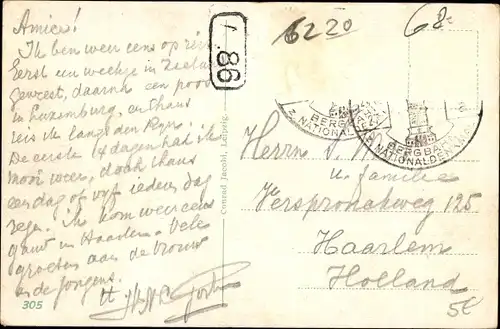 Amice!
Ik ben weer eens op reis
Eerst een weekje in Zeeland
geweest, daarna een poos
in Luxemburg, en thans
reis ik langs den Rijn.
De eerste 14 dagen had ik
mooi weer, doch thans
een dag of vijf iederen dag
regen. Ik kom weer eens
gauw in Haarlem. Vele
groeten aan de vrouw
en de jongens.
305
1.86
Conrad Jacobi, Leipzig.
6220
68.-
BERGBAHN
NATIONALDENKMAL
BERGBAHN
NATIONALDENKMAL
Herrn
u. familie
Verspronckweg 125
Haarlem
Holland
5E